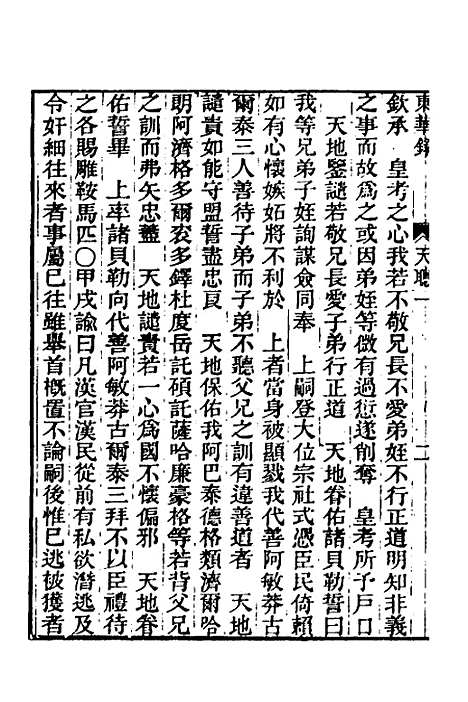 東華錄 天聰一 二
欽承　皇考之心我若不敬兄長不愛弟姪不行正道明知非義
之事而故爲之或因弟姪等微有過愆遂削奪　皇考所予戶口
天地鑒譴若敬兄長愛子弟行正道　天地眷佑諸貝勒誓曰
我等兄弟子姪詢謀僉同奉　上嗣登大位宗社式憑臣民倚賴
如有心懷嫉妬將不利於　上者當身被顯戮我代善阿敏莽古
爾泰三人善待子弟而子弟不聽父兄之訓有違善道者　天地
譴責如能守盟誓盡忠良　天地保佑我阿巴泰德格類濟爾哈
朗阿濟格多爾袞多鐸杜度岳託碩託薩哈廉豪格等若背父兄
之訓而弗矢忠藎　天地譴責若一心爲國不懷偏邪　天地眷
佑誓畢　上率諸貝勒向代善阿敏莽古爾泰三拜不以臣禮待
之各賜雕鞍馬匹〇甲戌諭曰凡漢官漢民從前有私欲潛逃及
令奸細往來者事屬已往雖舉首槪置不論嗣後惟已逃被獲者